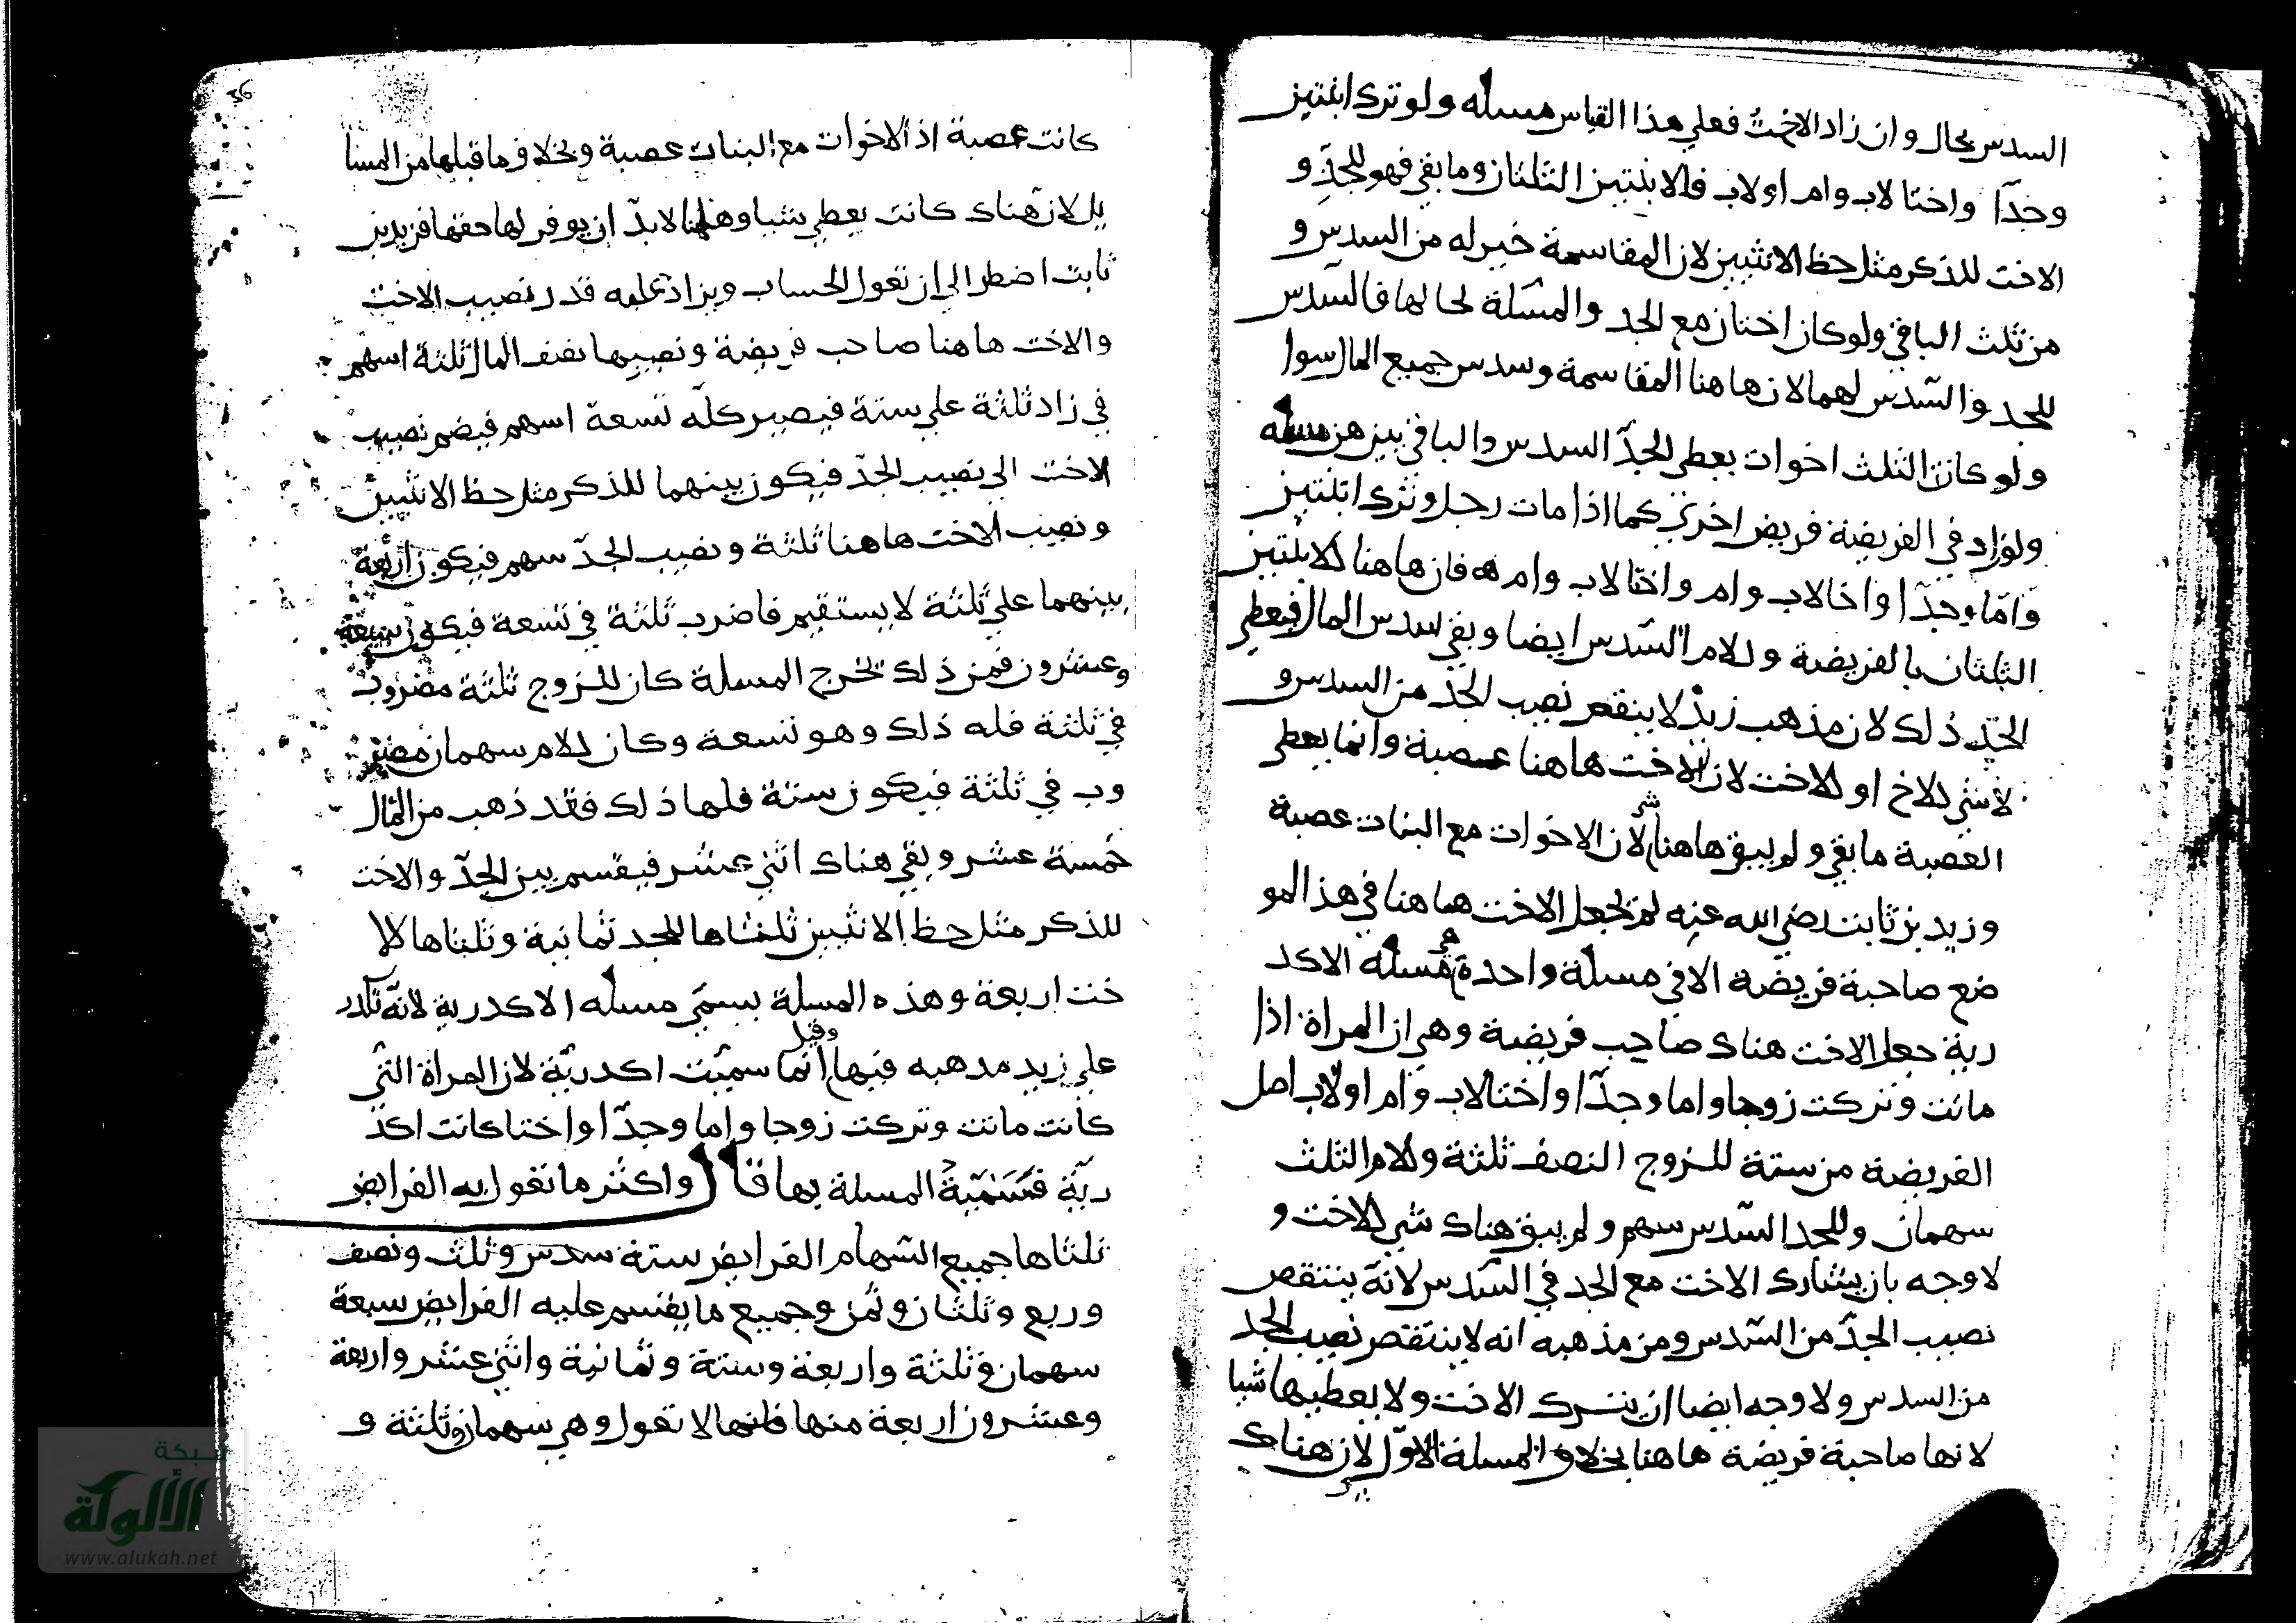 السدس بحال وان زاد الاخت فعلي هذا القياس مسله ولو ترك ابنتين
وجدّا واختا لاب وام او لاب فللابنتين الثلثان وما بقي فهو للجدّ و
الاخت للذكر مثل حظ الانثيين لان المقاسمة خير له من السدس و
من ثلث الباقي ولو كان اختان مع الجد والمسَلة لحالها فالسّدس
للجد والسّدس لهما لان هاهنا المقاسمة وسدس جميع المال سوا
ولو كان الثلث اخوات يعطي للجدّ السدس والباقي بينهن مسله
ولوزاد في الفريضة فريض اخري كما اذا مات رجل وترك ابنتين
وامّا وجدّا واخا لاب وام واختا لاب وام فان هاهنا للابنتين
الثلثان بالفريضة وللام السّدس ايضا وبقي سدس المال فيعطي
الجّد ذلك لان مذهب زيد لا ينقص نصيب الجدّ من السدس و
لا شي للاخ او للاخت لان الاخت هاهنا عصبة وانما يعطي
العصبة ما بقي ولم يبق هاهنا شي لان الاخوات مع البنات عصبة
وزيد بن ثابت رضي الله عنه لم يجعل الاخت هاهنا في هذ المو
ضع صاحبة فريضة الا في مسلة واحدة هي مسله الاكد
رية جعل الاخت هناك صاحب فريضة وهي ان المراة اذا
ماتت وتركت زوجا واما وجدّا واختا لاب وام او لاب اصل
الفريضة من ستة للزوج النصف ثلثة وللام الثلث
سهمان وللجد السّدس سهم ولم يبق هناك شي للاخت و
لا وجه بان يشارك الاخت مع الجد في السّدس لانه ينتقص
نصيب الجدّ من السّدس ومن مذهبه انه لا ينتقص نصيب الجد
من السدس ولا وجه ايضا ان يترك الاخت ولا يعطيها شيا
لانها صاحبة فريضة هاهنا بخلاف المسلة الاوّل لان هناك
36
كانت عصبة اذ الاخوات مع البنات عصبة وبخلاف ما قبلها من المسا
يل لان هناك كانت يعطي شيا وهاهنا لا بدّ ان يوفر لها حقها فزيد بن
ثابت اضطر الي ان تعول الحساب ويزاد عليه قدر نصيب الاخت
والاخت هاهنا صاحب فريضة ونصيبها نصف المال ثلثة اسهم
في زاد ثلثة علي ستة فيصير كلّه تسعة اسهم فيضم نصيب
الاخت الي نصيب الجدّ فيكون بينهما للذكر مثل حظ الانثيين
ونصيب الاخت هاهنا ثلثة ونصيب الجدّ سهم فيكون اربعة
بينهما علي ثلثة لا يستقيم فاضرب ثلثة في تسعة فيكون سبعة
وعشرون فمن ذلك تخرج المسلة كان للزوج ثلثة مضروب
في ثلثة فله ذلك وهو تسعة وكان للام سهمان مضر
وب في ثلثة فيكون ستة فلها ذلك فقد ذهب من المال
خمسة عشر وبقي هناك اثني عشر فيقسم بين الجدّ والاخت
للذكر مثل حظ الانثيين ثلثاها للجد ثمانية وثلثاها للا
خت اربعة وهذه المسلة يسمّي مسله الاكدرية لانّه تكدر
علي زيد مدهبه فيها وقيل انما سميّت اكدريّة لان المراة التي
كانت ماتت وتركت زوجا واما وجدّا واختا كانت اكد
ريّة فَسَمّيةُ المسلة بها قال واكثر ما تعول به الفرايض
ثلثاها جميع السّهام الفرايض ستة سدس وثلث ونصف
وربع وثلثان وثمن وجميع ما يقسم عليه الفرايض سبعة
سهمان وثلثة واربعة وستة وثمانية واثني عشر واربعة
وعشرون اربعة منها فانها لا تعول وهي سهمان وثلثة و
شبكة
الألوكة
www.alukah.net